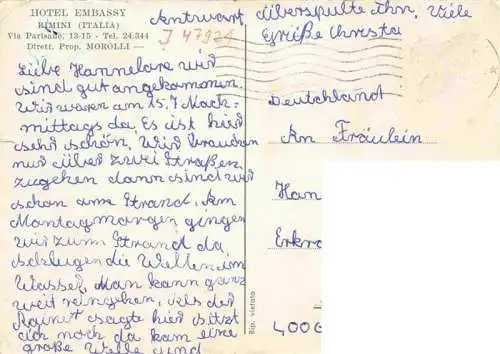 HOTEL EMBASSY
RIMINI (ITALIA)
Via Parisano, 13-15 - Tel. 24.344
Dirett. Prop. MOROLLI
J 47921
Antwort, überspulte Ihn, Viele
Grüße Christa
Liebe Hannelore wir
sind gut angekommen.
Wir waren am 15.7 Nach-
mittags da. Es ist hier
sehr schön. Wir brauchen
nur über zwei Straßen
zugehen dann sind wir
schon am Strand. Am
Montagmorgen gingen
wir zum Strand da
schlugen die Wellen im
Wasser. Man kann ganz
weit reingehen, als der
Rainer sagte hier sitzt
ich noch da kam eine
große Welle und
Deutschland
An Fräulein
Han
Erkr
4006
Rip. vietata